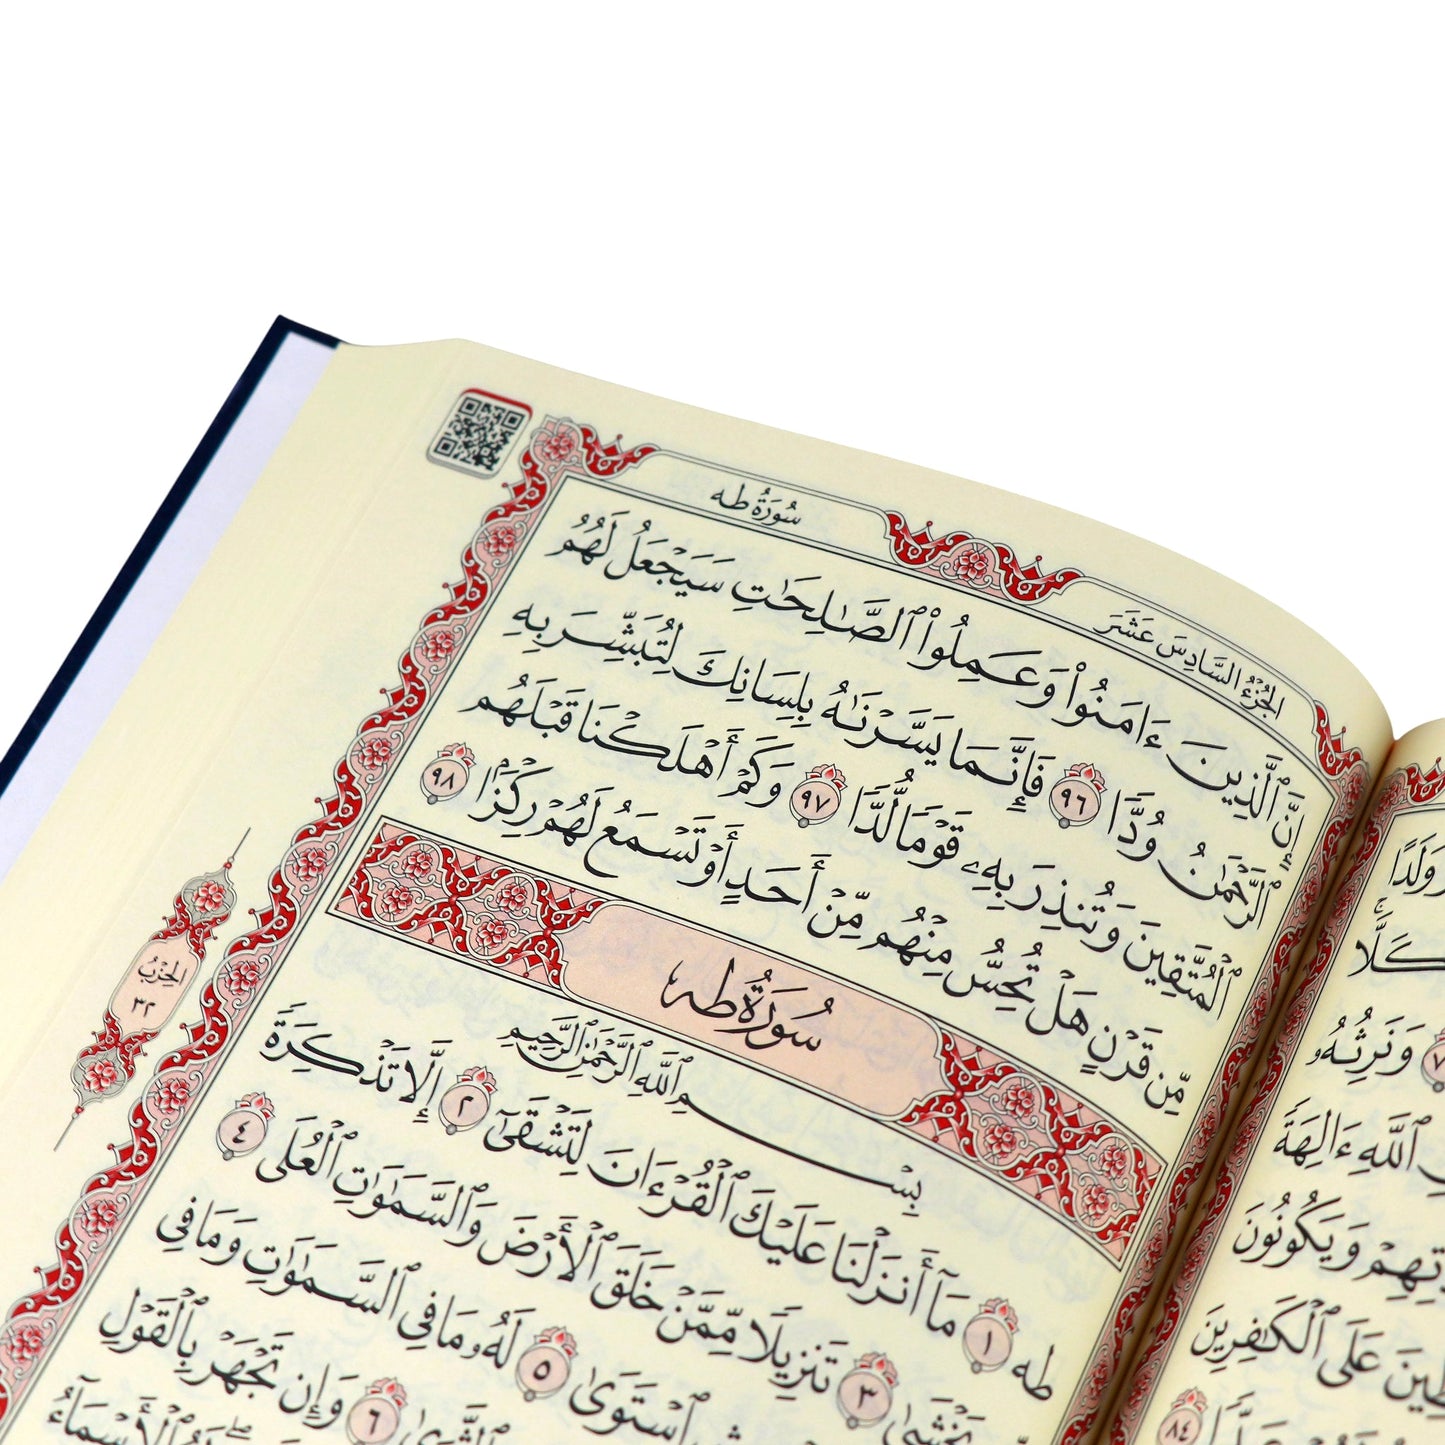 سُورَةُ طه
الجُزْءُ السَّادِسَ عَشَرَ
إِنَّ ٱلَّذِينَ ءَامَنُوا۟ وَعَمِلُوا۟ ٱلصَّـٰلِحَـٰتِ سَيَجْعَلُ لَهُمُ
ٱلرَّحْمَـٰنُ وُدًّا ٩٦ فَإِنَّمَا يَسَّرْنَـٰهُ بِلِسَانِكَ لِتُبَشِّرَ بِهِ
ٱلْمُتَّقِينَ وَتُنذِرَ بِهِۦ قَوْمًا لُّدًّا ٩٧ وَكَمْ أَهْلَكْنَا قَبْلَهُم
مِّن قَرْنٍ هَلْ تُحِسُّ مِنْهُم مِّنْ أَحَدٍ أَوْ تَسْمَعُ لَهُمْ رِكْزًۢا ٩٨
سُورَةُ طه
بِسْمِ ٱللَّهِ ٱلرَّحْمَـٰنِ ٱلرَّحِيمِ
طه ١ مَآ أَنزَلْنَا عَلَيْكَ ٱلْقُرْءَانَ لِتَشْقَىٰٓ ٢ إِلَّا تَذْكِرَةً
يَخْشَىٰ ٣ تَنزِيلًا مِّمَّنْ خَلَقَ ٱلْأَرْضَ وَٱلسَّمَـٰوَٰتِ ٱلْعُلَى ٤
ٱسْتَوَىٰ ٥ لَهُۥ مَا فِى ٱلسَّمَـٰوَٰتِ وَمَا فِى
ٱلثَّرَىٰ ٦ وَإِن تَجْهَرْ بِٱلْقَوْلِ
ٱلْأَسْمَآءُ
الحِزْبُ
٣٢
وَوَلَدًا
كَلَّا
وَنَرِثُهُۥ
ٱللَّهِ ءَالِهَةً
وَيَكُونُونَ
عَلَى ٱلْكَـٰفِرِينَ
٨٤